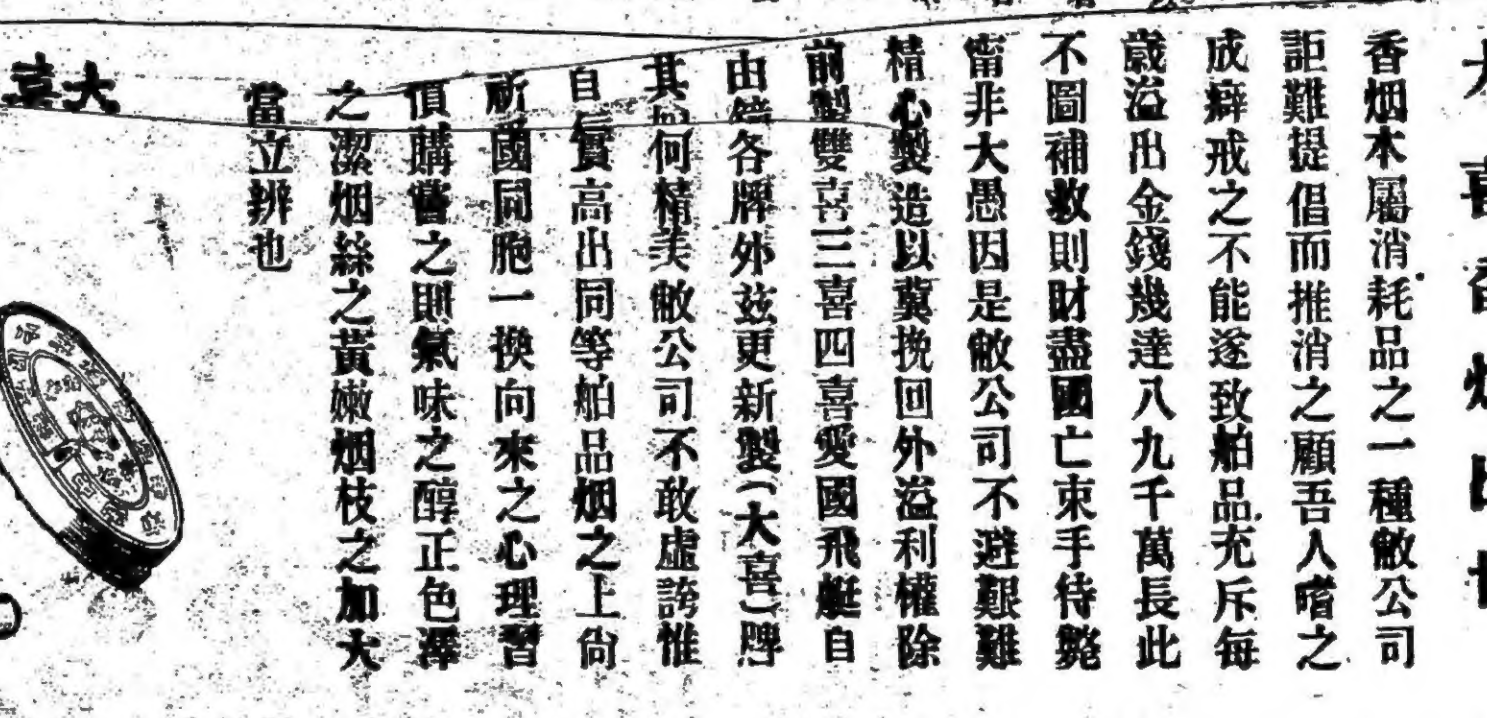 大喜香烟出世
香烟本屬消耗品之一種敝公司
詎難提倡而推消之顧吾人嗜之
成癖戒之不能遂致舶品充斥每
歲溢出金錢幾達八九千萬長此
不圖補救則財盡國亡束手待斃
甯非大愚因是敝公司不避艱難
精心製造以冀挽回外溢利權除
前製雙喜三喜四喜愛國飛艇自
由鐘各牌外茲更新製(大喜)牌
其如何精美敝公司不敢虛誇惟
自信實高出同等舶品烟之上尙
祈國同胞一換向來之心理習
慣購嘗之則氣味之醇正色澤
之潔烟絲之黃嫩烟枝之加大
當立辨也
大喜